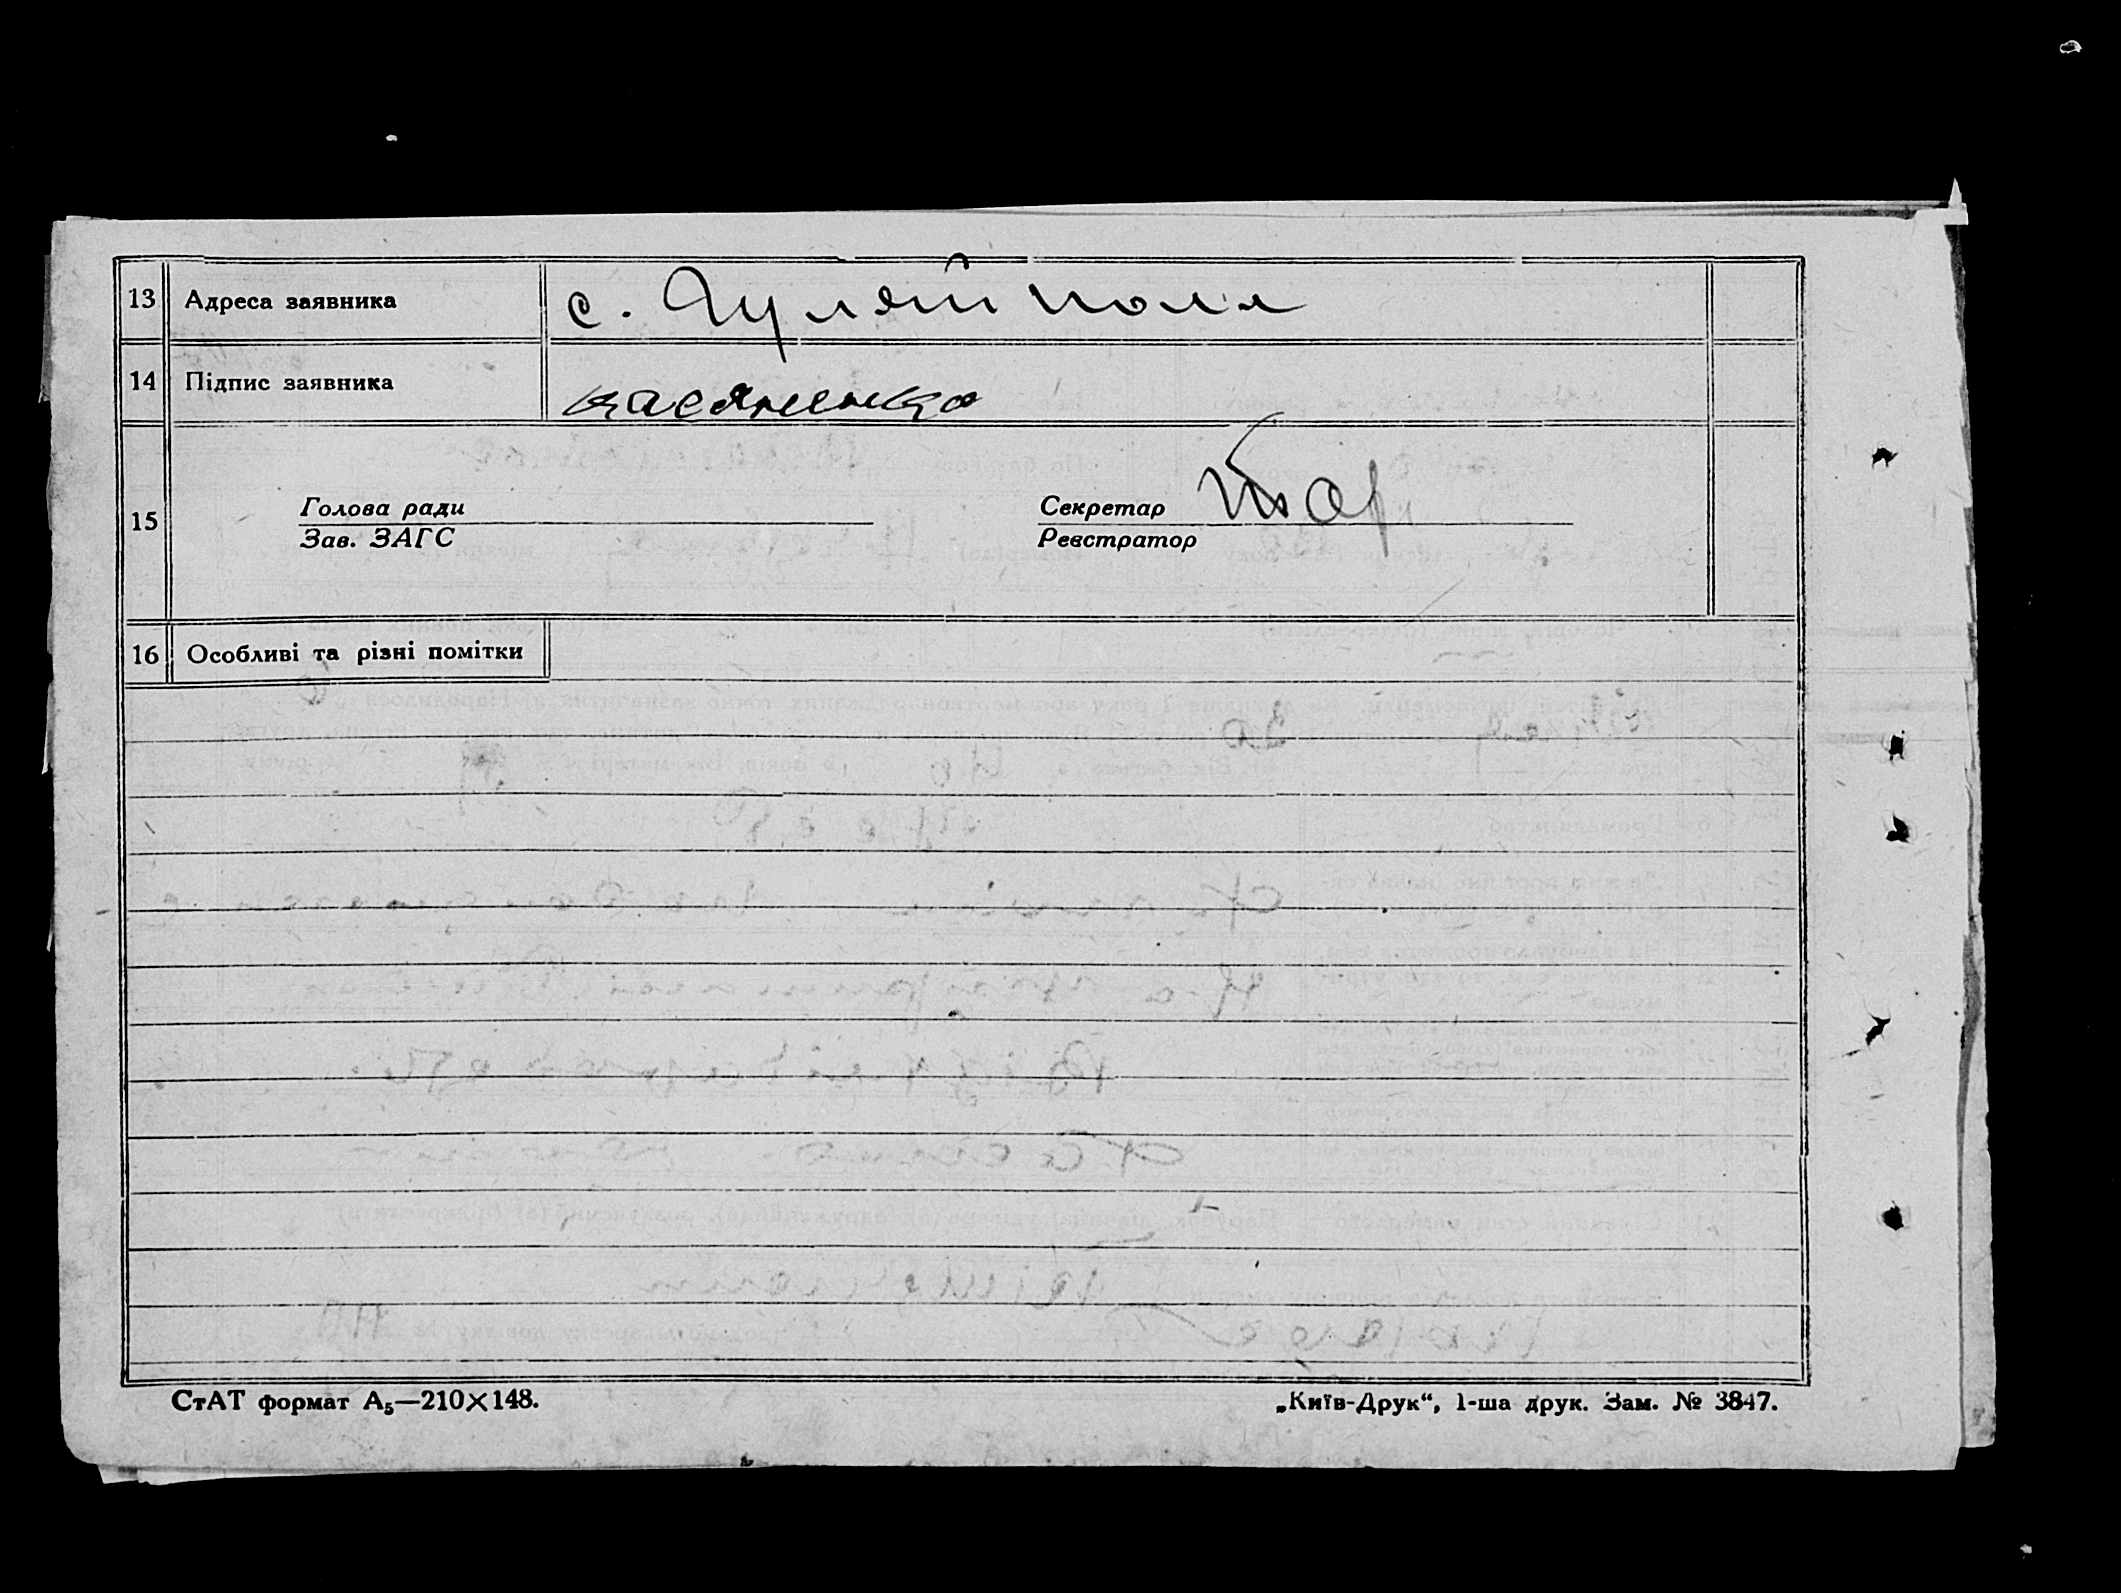 13 Адреса заявника с. Гуляйполя
14 Підпис заявника касяненко
15 Голова ради
Зав. ЗАГС
Секретар
Реєстратор
16 Особливі та різні помітки
СтАТ формат А₅—210×148.
„Київ-Друк“, 1-ша друк. Зам. № 3847.